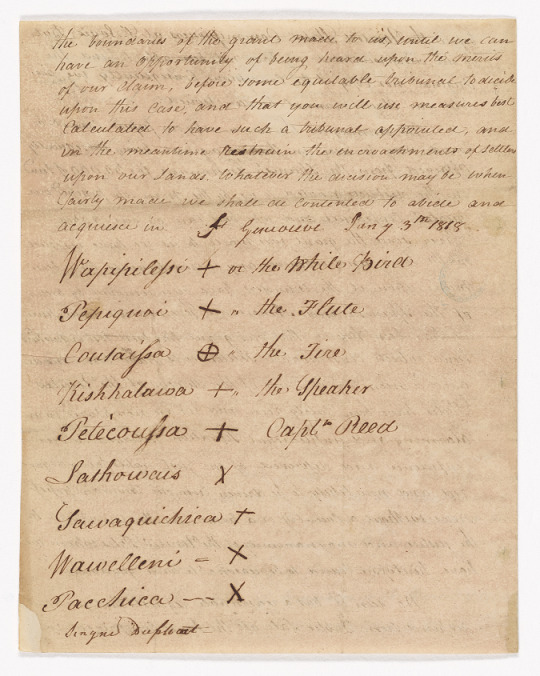 the boundaries of the grant made to us, until we can
have an opportunity of being heard upon the merits
of our claim, before some equitable tribunal to decide
upon this case, and that you will use measures best
Calculated to have such a tribunal appointed, and
in the meantime restrain the encroachments of settlers
upon our Lands. Whatever the decision may be when
fairly made we shall be contented to abide and
acquiesce in St Genevieve Jany 3th 1818
Wapipilessi + or the While Bird
Pepiquoi + " the Flute
Cousaissa ⊕ " the Fire
Kishhalawa + " the Speaker
Petécoussa + Captn Reed
Lathowais X
Tawaquichica +
Wawelleni = X
Pacchica -- X